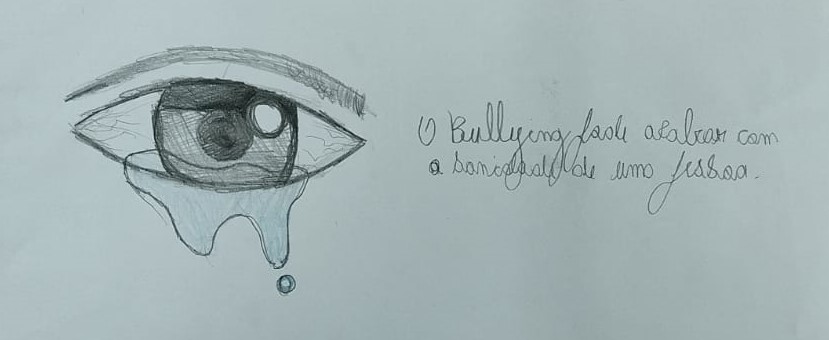 O Bullying pode acabar com
a sanidade de uma pessoa.